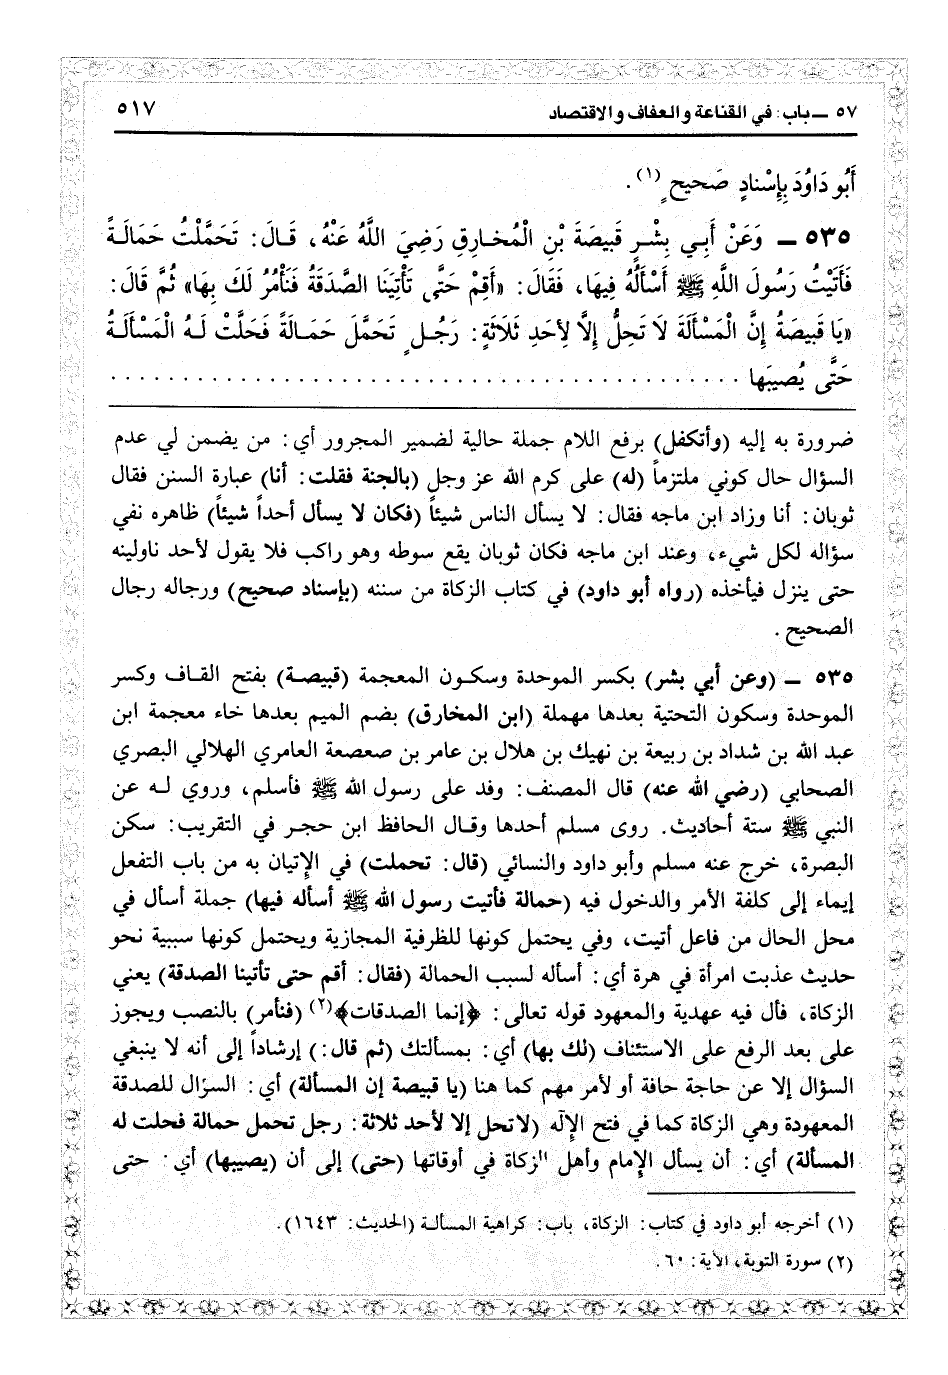 ٥٧ ــ باب: في القناعة والعفاف والاقتصاد ٥١٧
أَبُو دَاوُدَ بِإِسْنادٍ صَحيحٍ(١).
٥٣٥ ــ وَعَنْ أَبِي بِشْرٍ قَبِيصَةَ بْنِ الْمُخارِقِ رَضِيَ اللَّهُ عَنْهُ، قَالَ: تَحَمَّلْتُ حَمَالَةً
فَأَتَيْتُ رَسُولَ اللَّهِ ﷺ أَسْأَلُهُ فِيهَا، فَقَالَ: «أَقِمْ حَتَّى تَأْتِيَنَا الصَّدَقَةُ فَنَأْمُرُ لَكَ بِهَا» ثُمَّ قَالَ:
«يَا قَبِيصَةُ إِنَّ الْمَسْأَلَةَ لَا تَحِلُّ إِلَّا لِأَحَدِ ثَلَاثَةٍ: رَجُلٍ تَحَمَّلَ حَمَالَةً فَحَلَّتْ لَهُ الْمَسْأَلَةُ
حَتَّى يُصيبَها . . . . . . . . . . . . . . . . . . . . . . . . . . . . . . . . . . . . . . . . . . .
ضرورة به إليه (وأتكفل) برفع اللام جملة حالية لضمير المجرور أي: من يضمن لي عدم
السؤال حال كوني ملتزماً (له) على كرم الله عز وجل (بالجنة فقلت: أنا) عبارة السنن فقال
ثوبان: أنا وزاد ابن ماجه فقال: لا يسأل الناس شيئاً (فكان لا يسأل أحداً شيئاً) ظاهره نفي
سؤاله لكل شيء، وعند ابن ماجه فكان ثوبان يقع سوطه وهو راكب فلا يقول لأحد ناولينه
حتى ينزل فيأخذه (رواه أبو داود) في كتاب الزكاة من سننه (بإسناد صحيح) ورجاله رجال
الصحيح.
٥٣٥ ــ (وعن أبي بشر) بكسر الموحدة وسكون المعجمة (قبيصة) بفتح القاف وكسر
الموحدة وسكون التحتية بعدها مهملة (ابن المخارق) بضم الميم بعدها خاء معجمة ابن
عبد الله بن شداد بن ربيعة بن نهيك بن هلال بن عامر بن صعصعة العامري الهلالي البصري
الصحابي (رضي الله عنه) قال المصنف: وفد على رسول الله ﷺ فأسلم، وروي له عن
النبي ﷺ ستة أحاديث. روى مسلم أحدها وقال الحافظ ابن حجر في التقريب: سكن
البصرة، خرج عنه مسلم وأبو داود والنسائي (قال: تحملت) في الإتيان به من باب التفعل
إيماء إلى كلفة الأمر والدخول فيه (حمالة فأتيت رسول الله ﷺ أسأله فيها) جملة أسأل في
محل الحال من فاعل أتيت، وفي يحتمل كونها للظرفية المجازية ويحتمل كونها سببية نحو
حديث عذبت امرأة في هرة أي: أسأله لسبب الحمالة (فقال: أقم حتى تأتينا الصدقة) يعني
الزكاة، فأل فيه عهدية والمعهود قوله تعالى: ﴿إنما الصدقات﴾(٢) (فنأمر) بالنصب ويجوز
على بعد الرفع على الاستئناف (لك بها) أي: بمسألتك (ثم قال:) إرشاداً إلى أنه لا ينبغي
السؤال إلا عن حاجة حافة أو لأمر مهم كما هنا (يا قبيصة إن المسألة) أي: السؤال للصدقة
المعهودة وهي الزكاة كما في فتح الإلٰه (لا تحل إلا لأحد ثلاثة: رجل تحمل حمالة فحلت له
المسألة) أي: أن يسأل الإمام وأهل الزكاة في أوقاتها (حتى) إلى أن (يصيبها) أي: حتى
(١) أخرجه أبو داود في كتاب: الزكاة، باب: كراهية المسألة (الحديث: ١٦٤٣).
(٢) سورة التوبة، الآية: ٦٠.